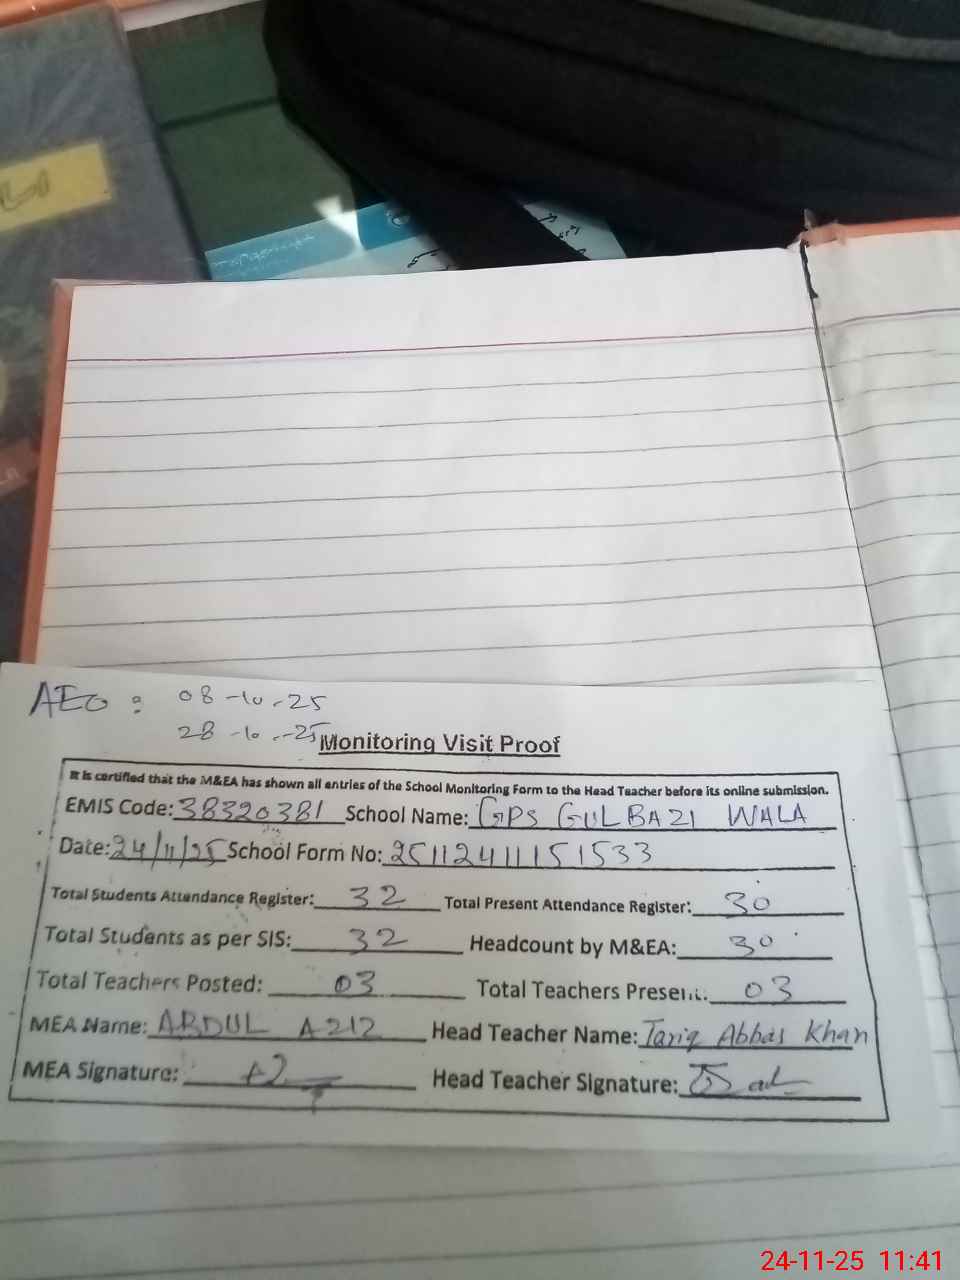 AEO : 08-10-25
28-10-25
Monitoring Visit Proof
It is certified that the M&EA has shown all entries of the School Monitoring Form to the Head Teacher before its online submission.
EMIS Code: 38320381 School Name: GPS GULBAZI WALA
Date: 24/11/25 School Form No: 25112411151533
Total Students Attendance Register: 32 Total Present Attendance Register: 30
Total Students as per SIS: 32 Headcount by M&EA: 30
Total Teachers Posted: 03 Total Teachers Present: 03
MEA Name: ABDUL AZIZ Head Teacher Name: Tariq Abbas Khan
MEA Signature: Head Teacher Signature:
24-11-25 11:41